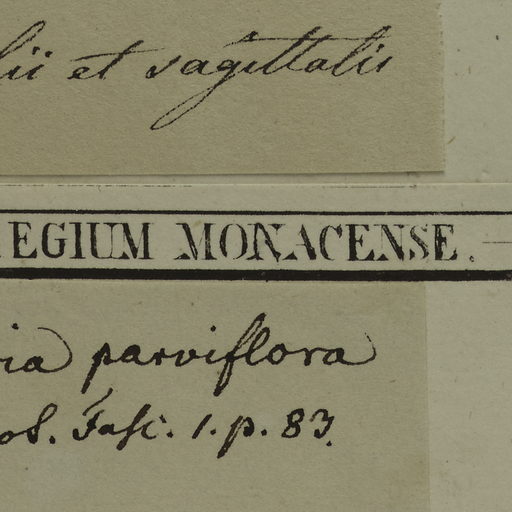 lii et sagittalis
EGIUM MONACENSE.
ia parviflora
ol. Fasc. 1. p. 83.